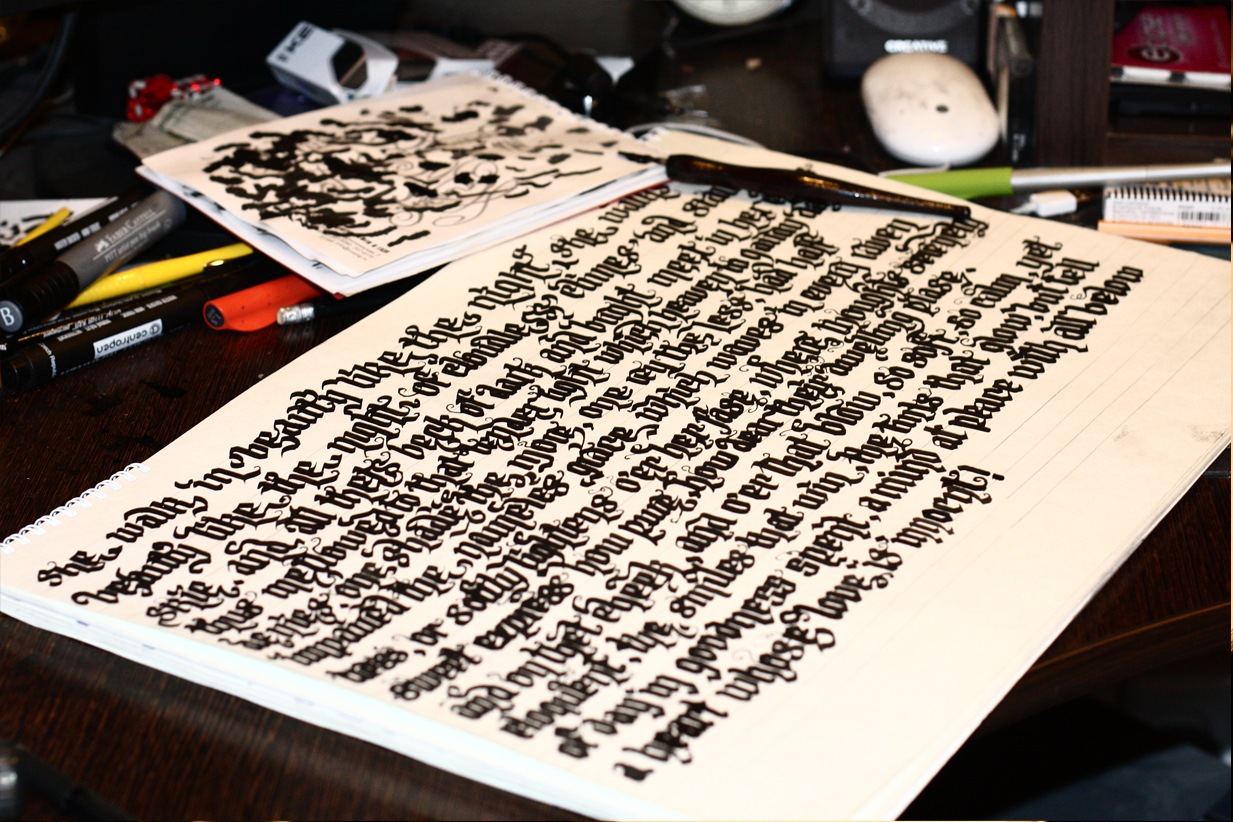 CREATIVE
FABER-CASTELL
B
centropen
She walk in beauty like the night she
beauty like the night, of cloudle ss climes, and star
skie, and all best of dark and bright meet in her
Thus mellowed to that tender light which heaven to
one shade the more, one ray the less had half
impaired the nameless grace which waves in every raven
tress, or softly lightens o'er her fase, where thoughts serenely
Sweet express how pure, how dear dwelling plase.
and on cheek, and o'er that brow, so soft, so calm, yet
eloquent, the smiles that win, the tins that glow, but tell
of day in goodness spent, a mind at peace with all below
A heart whose love is